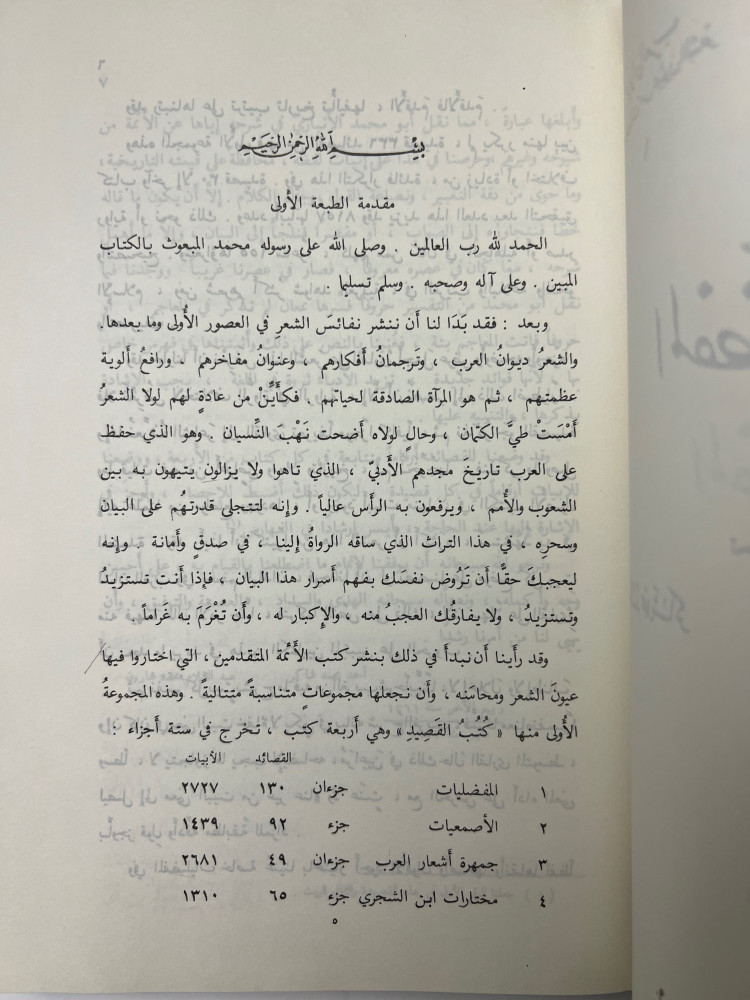 بسم الله الرحمن الرحيم
مقدمة الطبعة الأولى
الحمد لله رب العالمين . وصلى الله على رسوله محمد المبعوث بالكتاب
المبين . وعلى آله وصحبه . وسلم تسليما .
وبعد : فقد بَدَا لنا أَن ننشر نفائسَ الشعرِ في العصور الأُولى وما بعدها.
والشعرُ ديوانُ العرب ، وتَرجمانُ أَفكارهم ، وعنوانُ مفاخرهم . ورافعُ أَلوية
عظمتهم ، ثم هو المرآة الصادقة لحياتهم . فكأَيِّنْ من عادةٍ لهم لولا الشعرُ
أَمْسَتْ طيَّ الكتمان ، وحالٍ لولاه أَضحت نَهْبَ النِّسيان . وهو الذي حفظ
على العرب تاريخَ مجدهم الأَدبيّ ، الذي تاهوا ولا يزالون يتيهون به بين
الشعوب والأُمم ، ويرفعون به الرأَس عالياً . وإنه لتتجلى قدرتهُم على البيان
وسحرِه ، في هذا التراث الذي ساقه الرواةُ إلينا ، في صدقٍ وأَمانة . وإنه
ليعجبكَ حقًّا أَن تَرُوض نفسَك بفهم أَسرار هذا البيان ، فإذا أَنت تستزيدُ
وتستزيدُ ، ولا يفارقُك العجبُ منه ، والإكبار له ، وأَن تُغْرَمَ به غَراماً .
وقد رأَينا أَن نبدأَ في ذلك بنشر كتب الأَئمة المتقدمين ، التي اختاروا فيها
عيونَ الشعر ومحاسنَه ، وأَن نجعلها مجموعاتٍ متناسبةً متتاليةً . وهذه المجموعةُ
الأُولى منها « كُتُبُ القَصِيدِ » وهي أَربعة كتب ، تخرج في ستة أَجزاء :
القصائد الأبيات
١ المفضليات جزءان ١٣٠ ٢٧٢٧
٢ الأصمعيات جزء ٩٢ ١٤٣٩
٣ جمهرة أشعار العرب جزءان ٤٩ ٢٦٨١
٤ مختارات ابن الشجري جزء ٦٥ ١٣١٠
٥